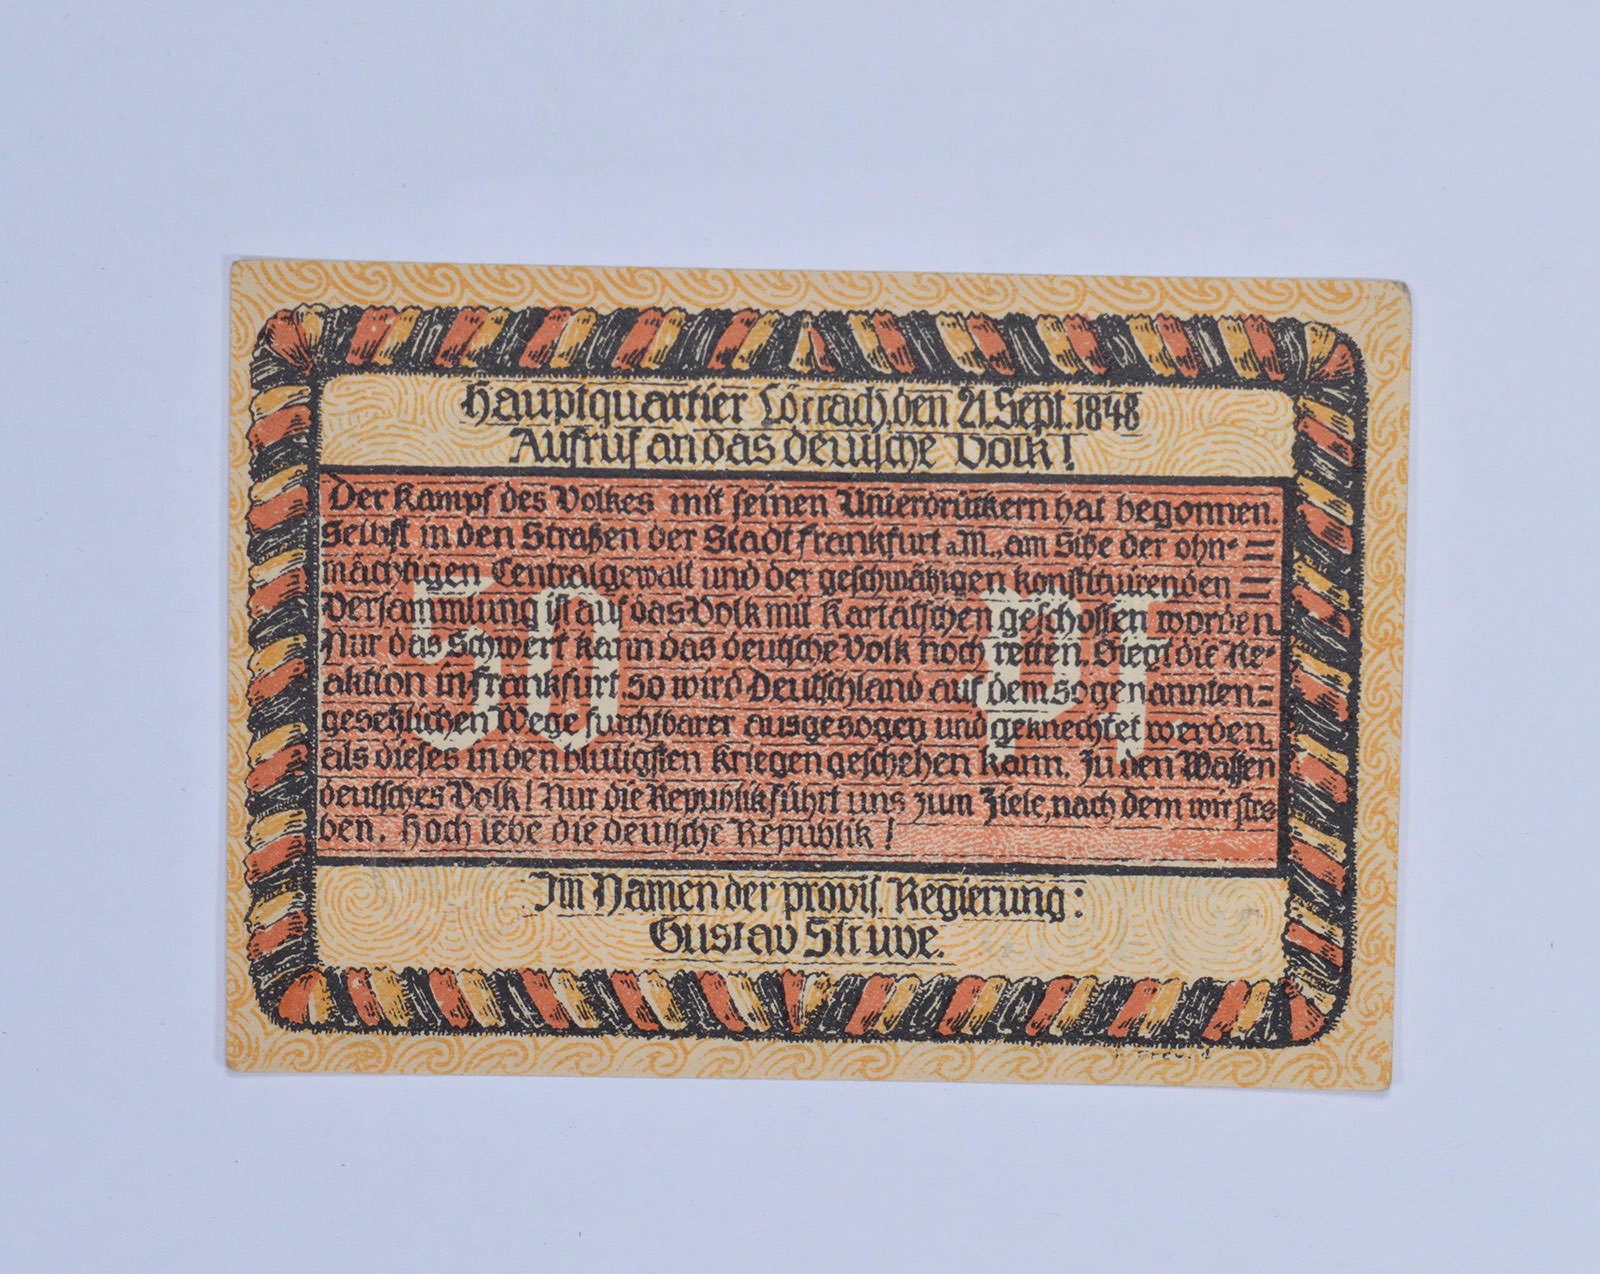 Hauptquartier Lörrach, den 21. Sept. 1848
Aufruf an das deutsche Volk!
Der Kampf des Volkes mit seinen Unterdrückern hat begonnen.
Selbst in den Straßen der Stadt Frankfurt a.M., am Sitze der ohn-
mächtigen Centralgewalt und der geschwätzigen konstituirenden
Versammlung ist auf das Volk mit Kartätschen geschossen worden.
Nur das Schwert kann das deutsche Volk noch retten. Siegt die Re-
aktion in Frankfurt, so wird Deutschland auf dem sogenannten
gesetzlichen Wege furchtbarer ausgesogen und geknechtet werden,
als dieses in den blutigsten Kriegen geschehen kann. Zu den Waffen
deutsches Volk! Nur die Republik führt uns zum Ziele, nach dem wir stre
ben. Hoch lebe die deutsche Republik!
50 Pf
Im Namen der provis. Regierung:
Gustav Struve.